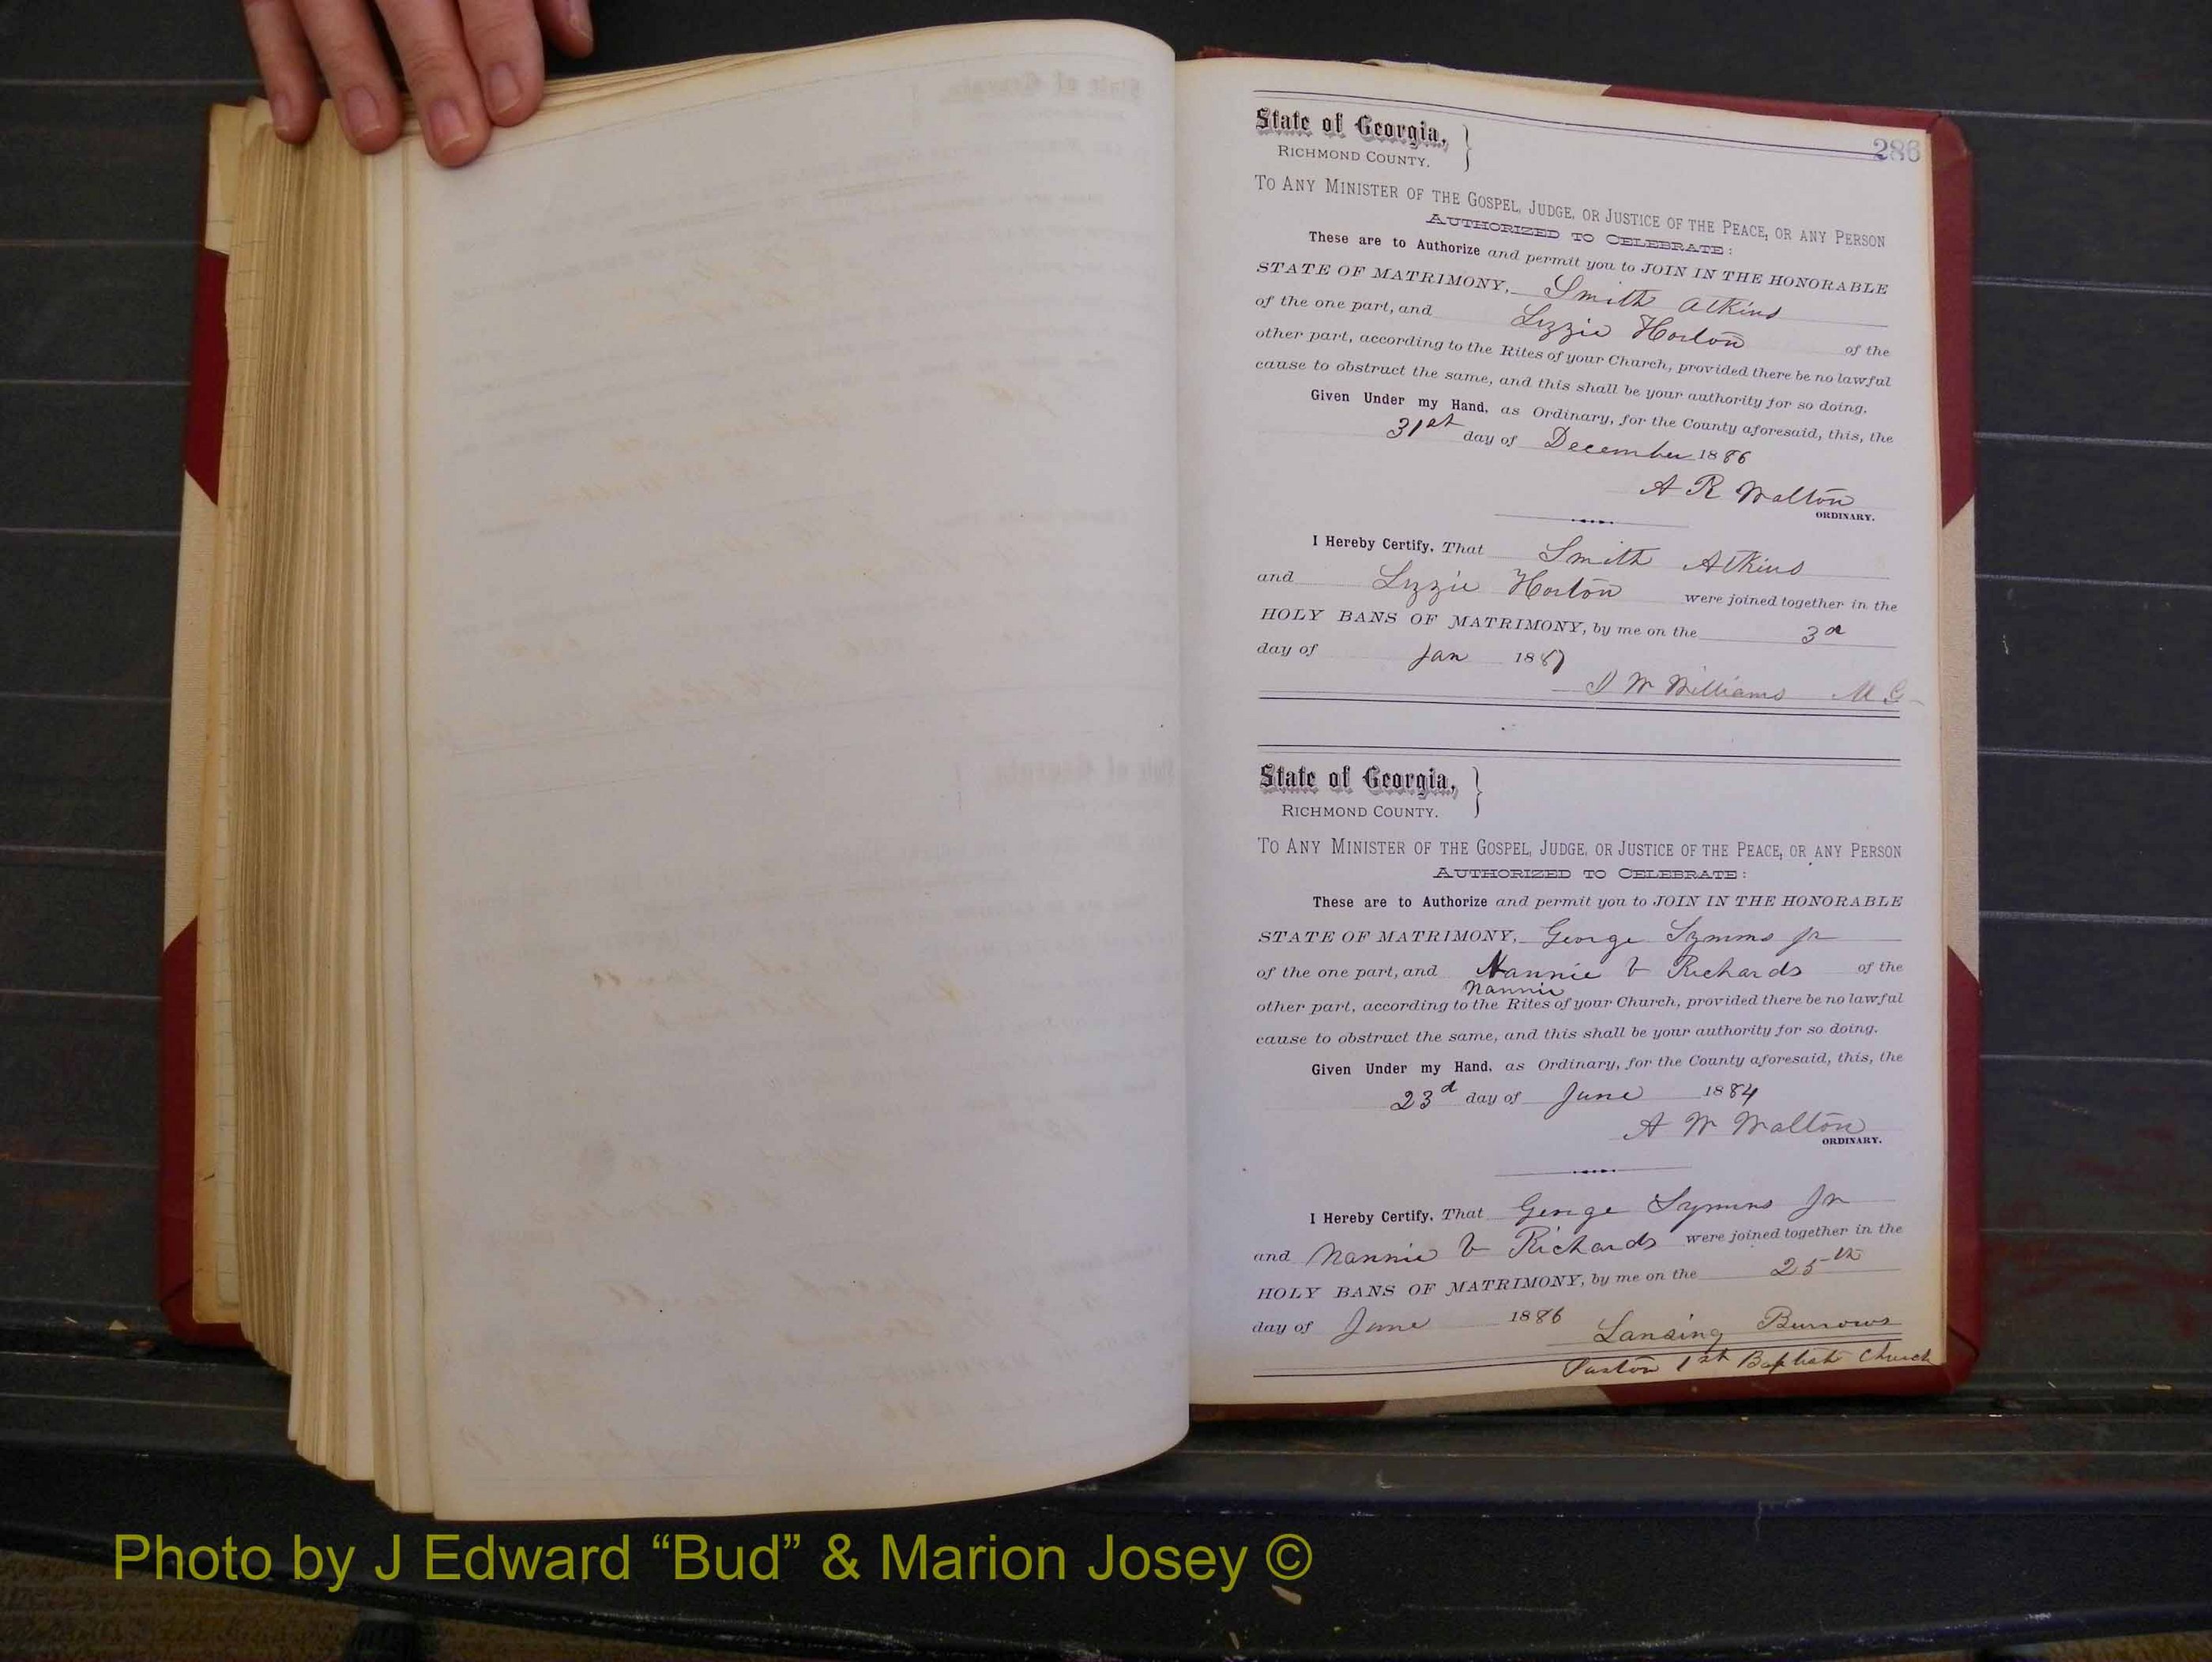 286
State of Georgia,
RICHMOND COUNTY.
TO ANY MINISTER OF THE GOSPEL, JUDGE, OR JUSTICE OF THE PEACE, OR ANY PERSON
AUTHORIZED TO CELEBRATE:
These are to Authorize and permit you to JOIN IN THE HONORABLE
STATE OF MATRIMONY, Smith Atkins
of the one part, and Lizzie Horton of the
other part, according to the Rites of your Church, provided there be no lawful
cause to obstruct the same, and this shall be your authority for so doing.
Given Under my Hand, as Ordinary, for the County aforesaid, this, the
31st day of December 1886
A R Walton
ORDINARY.
I Hereby Certify, That Smith Atkins
and Lizzie Horton were joined together in the
HOLY BANS OF MATRIMONY, by me on the 3d
day of Jan 1887
W Williams M G
State of Georgia,
RICHMOND COUNTY.
TO ANY MINISTER OF THE GOSPEL, JUDGE, OR JUSTICE OF THE PEACE, OR ANY PERSON
AUTHORIZED TO CELEBRATE:
These are to Authorize and permit you to JOIN IN THE HONORABLE
STATE OF MATRIMONY, George Symms Jr
of the one part, and Nannie V Richards of the
Nannie
other part, according to the Rites of your Church, provided there be no lawful
cause to obstruct the same, and this shall be your authority for so doing.
Given Under my Hand, as Ordinary, for the County aforesaid, this, the
23d day of June 1884
A W Walton
ORDINARY.
I Hereby Certify, That George Symms Jr
and Nannie V Richards were joined together in the
HOLY BANS OF MATRIMONY, by me on the 25th
day of June 1886 Lansing Burrows
Pastor 1st Baptist Church
Photo by J Edward “Bud” & Marion Josey ©